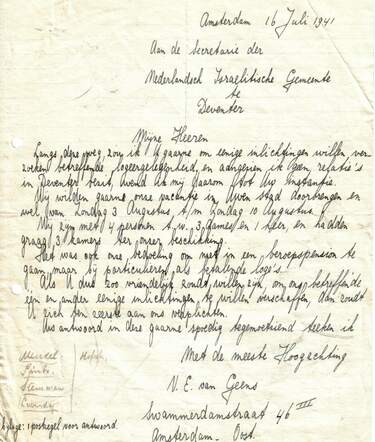 Amsterdam 16 Juli 1941
Aan de Secretarie der
Nederlandsch Israelitische Gemeente
te
Deventer
Mijne Heeren
Langs deze weg zou ik U gaarne om eenige inlichtingen willen ver-
zoeken betreffende logeergelegenheid, en aangezien ik geen relatie's
in Deventer bezit, wend ik mij daarom tot Uw instantie.
Wij wilden gaarne onze vacantie in Uwen stad doorbrengen en
wel van Zondag 3 Augustus t/m Zondag 10 Augustus.
Wij zijn met 4 personen t.w. 3 dames en 1 heer, en hadden
graag 2 kamers ter onze beschikking.
Het was ook onze bedoeling om niet in een beroepspension te
gaan, maar bij particulieren als betalende logé's.
Als U dus zoo vriendelijk zoudt willen zijn, om ons betreffende
een en ander eenige inlichtingen te willen verschaffen, dan zoudt
U zich ten zeerste aan ons verplichten.
Uw antwoord in deze gaarne spoedig tegemoetziend teeken ik
Met de meeste Hoogachting
V. E. van Geens
Swammerdamstraat 46 III
Amsterdam - Oost.
Mendel
Noteman
Bijlage: 1 postzegel voor antwoord